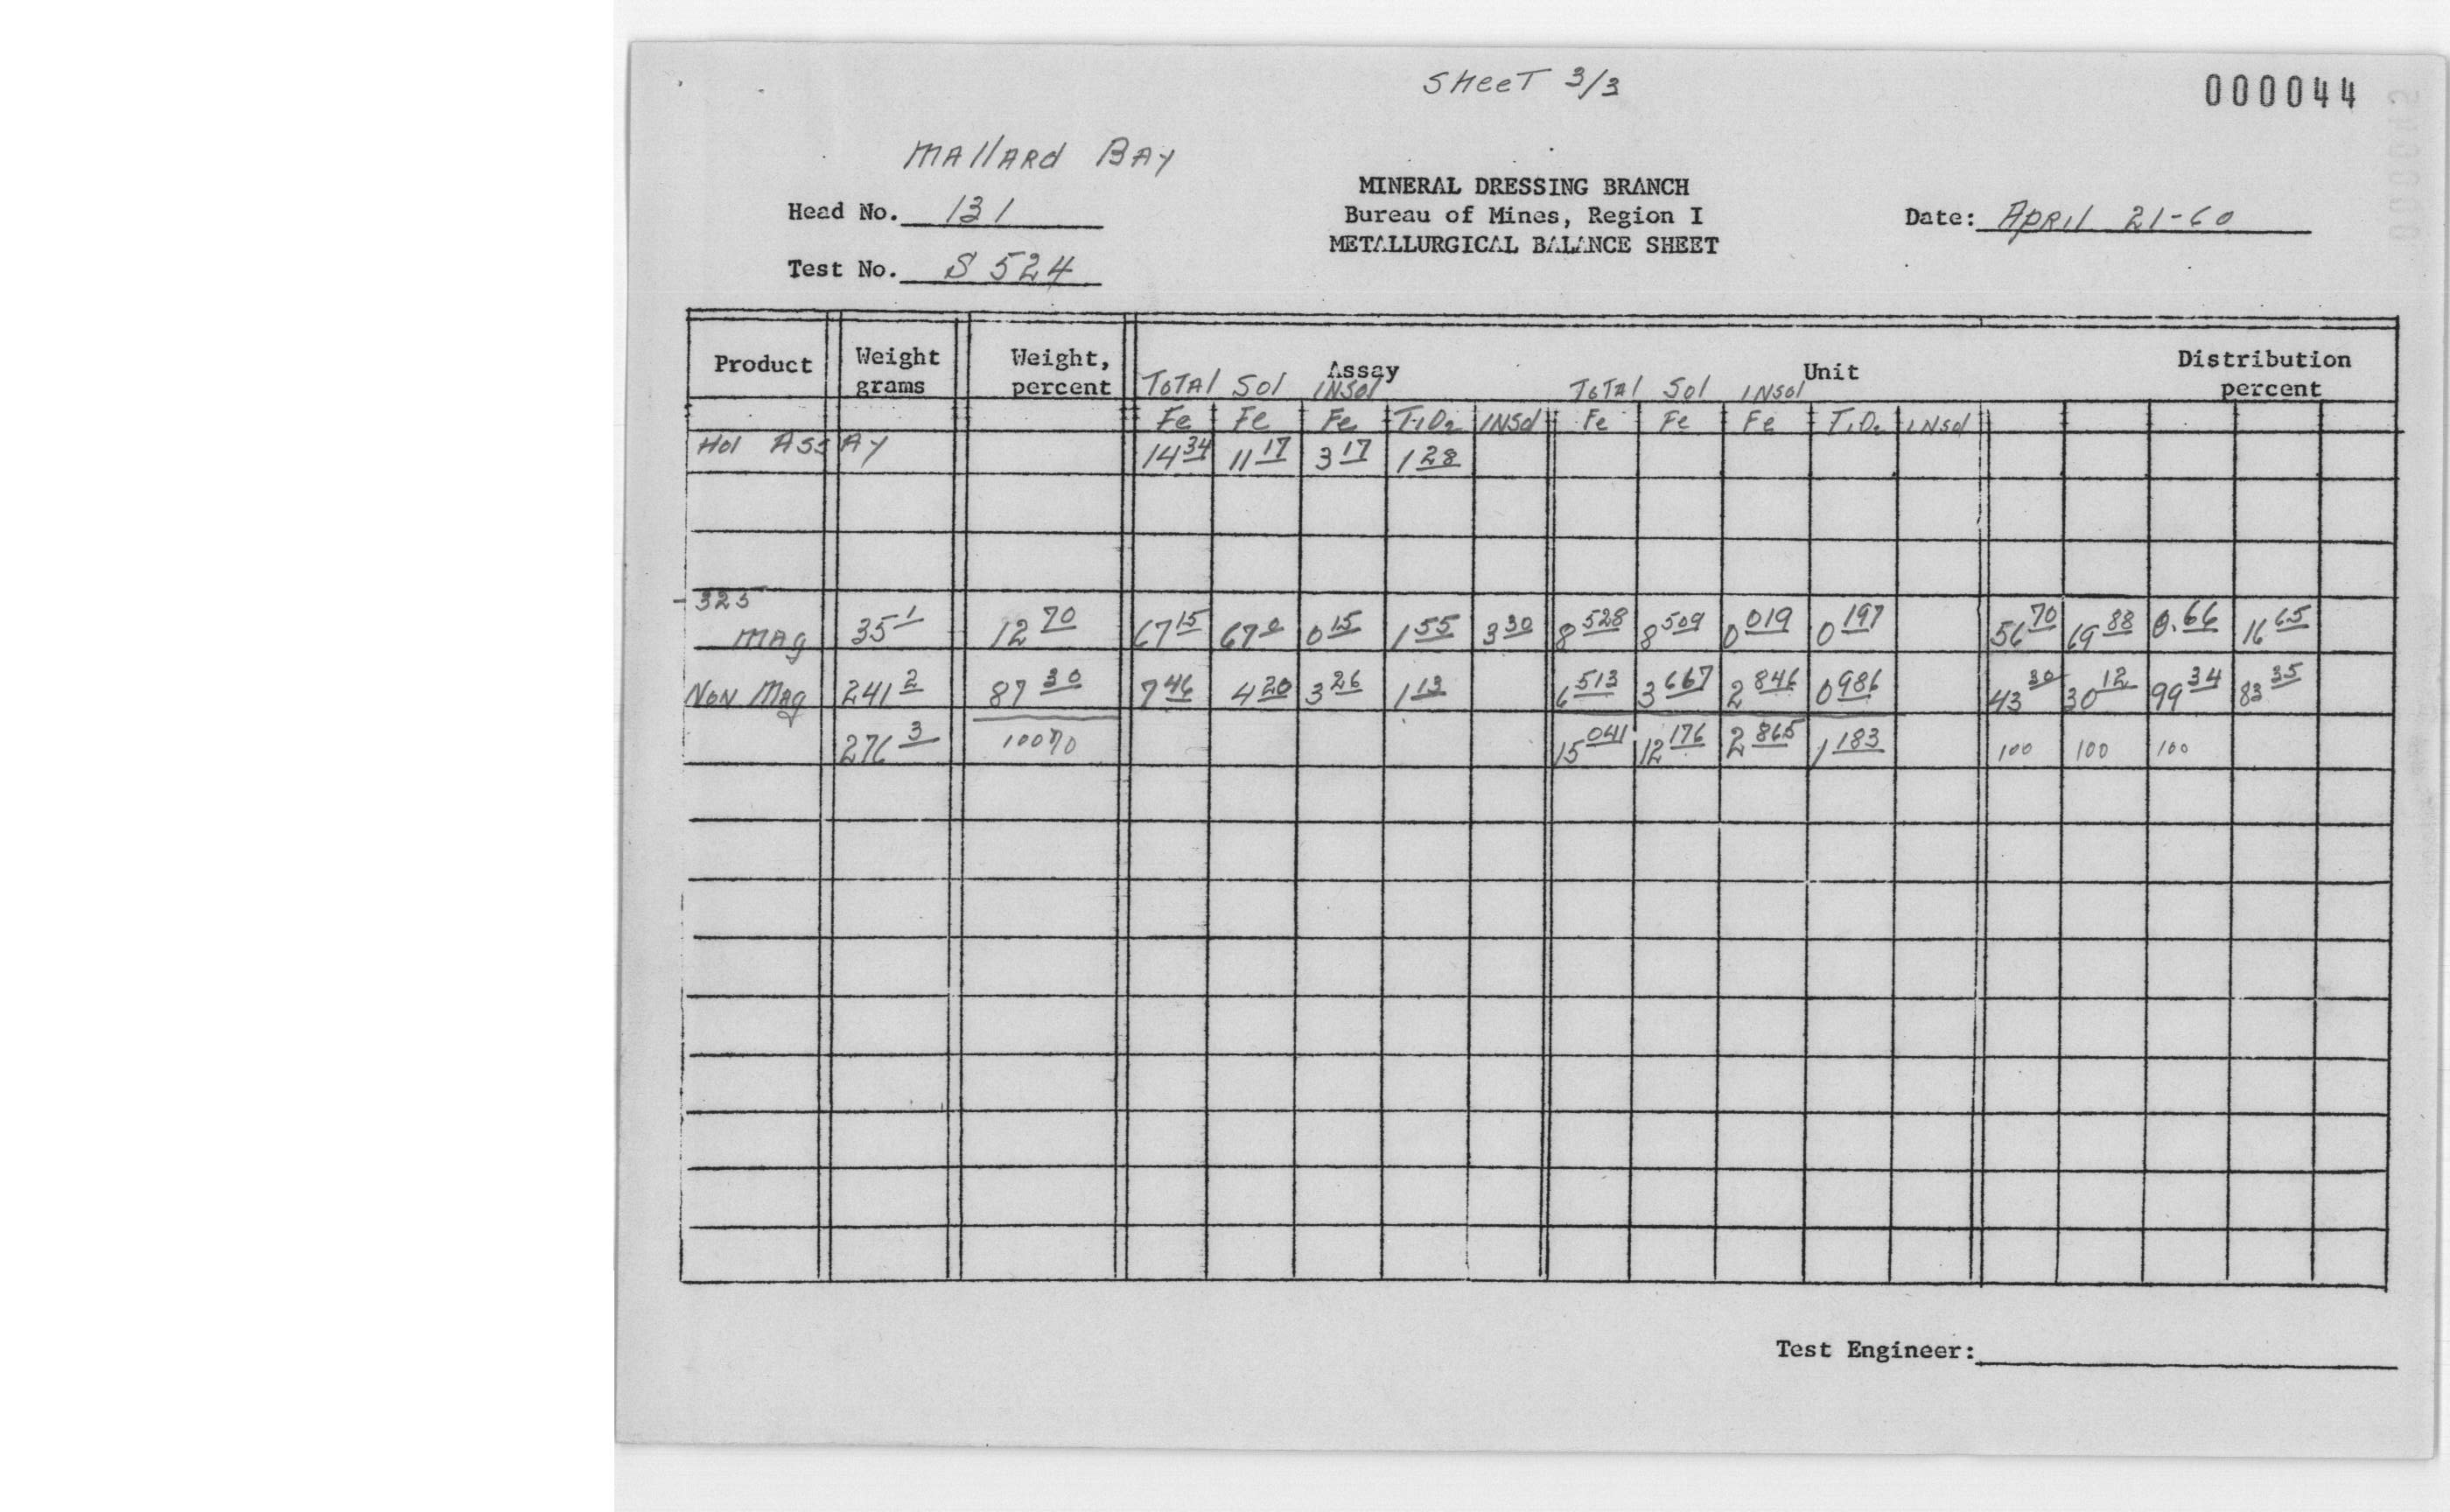 SHeeT 3/3
000044
MAllARd BAy
Head No. 131
MINERAL DRESSING BRANCH
Bureau of Mines, Region I
METALLURGICAL BALANCE SHEET
Date: APRIL 21-60
Test No. S 524
Product Weight grams Weight, percent Assay Unit Distribution percent
TOTAl Sol INSol TOTAl Sol INSol
Fe Fe Fe TiO2 INSol Fe Fe Fe TiO2 INSol
ASSAY 14 34 11 17 3 17 1 28
-325
MAg 35 1 12 70 67 15 67 0 0 15 1 55 3 30 8 528 8 509 0 019 0 197 56 70 69 88 0.66 16 65
NoN Mag 241 2 87 30 7 46 4 20 3 26 1 13 6 513 3 667 2 846 0 986 43 30 30 12 99 34 83 35
276 3 100% 15 041 12 176 2 865 1 183 100 100 100
Test Engineer: